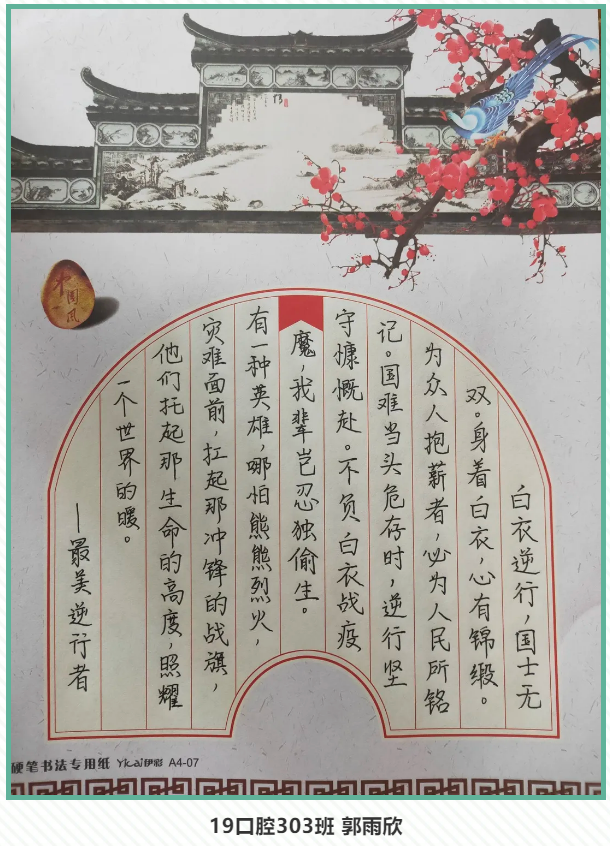 中国风
白衣逆行，国士无
双。身着白衣，心有锦缎。
为众人抱薪者，必为人民所铭
记。国难当头危存时，逆行坚
守慷慨赴。不负白衣战疫
魔，我辈岂忍独偷生。
有一种英雄，哪怕熊熊烈火，
灾难面前，扛起那冲锋的战旗，
他们托起那生命的高度，照耀
一个世界的暖。
—最美逆行者
硬笔书法专用纸 Yicai伊彩 A4-07
19口腔303班 郭雨欣